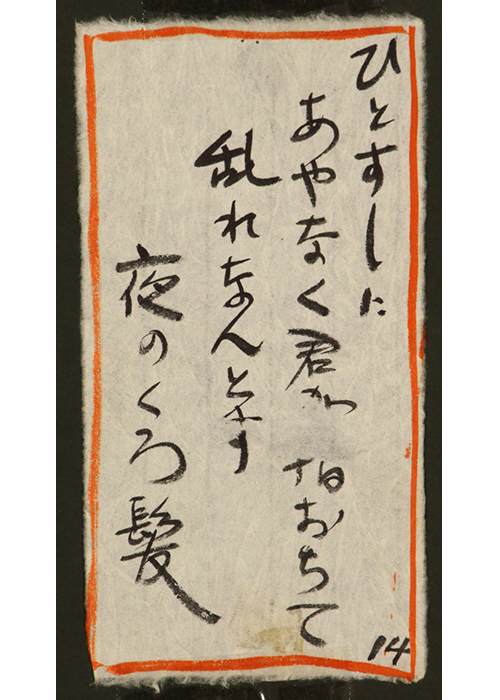 ひとすしに
あやなく君か指おちて
乱れなんとす
夜のくろ髪
14